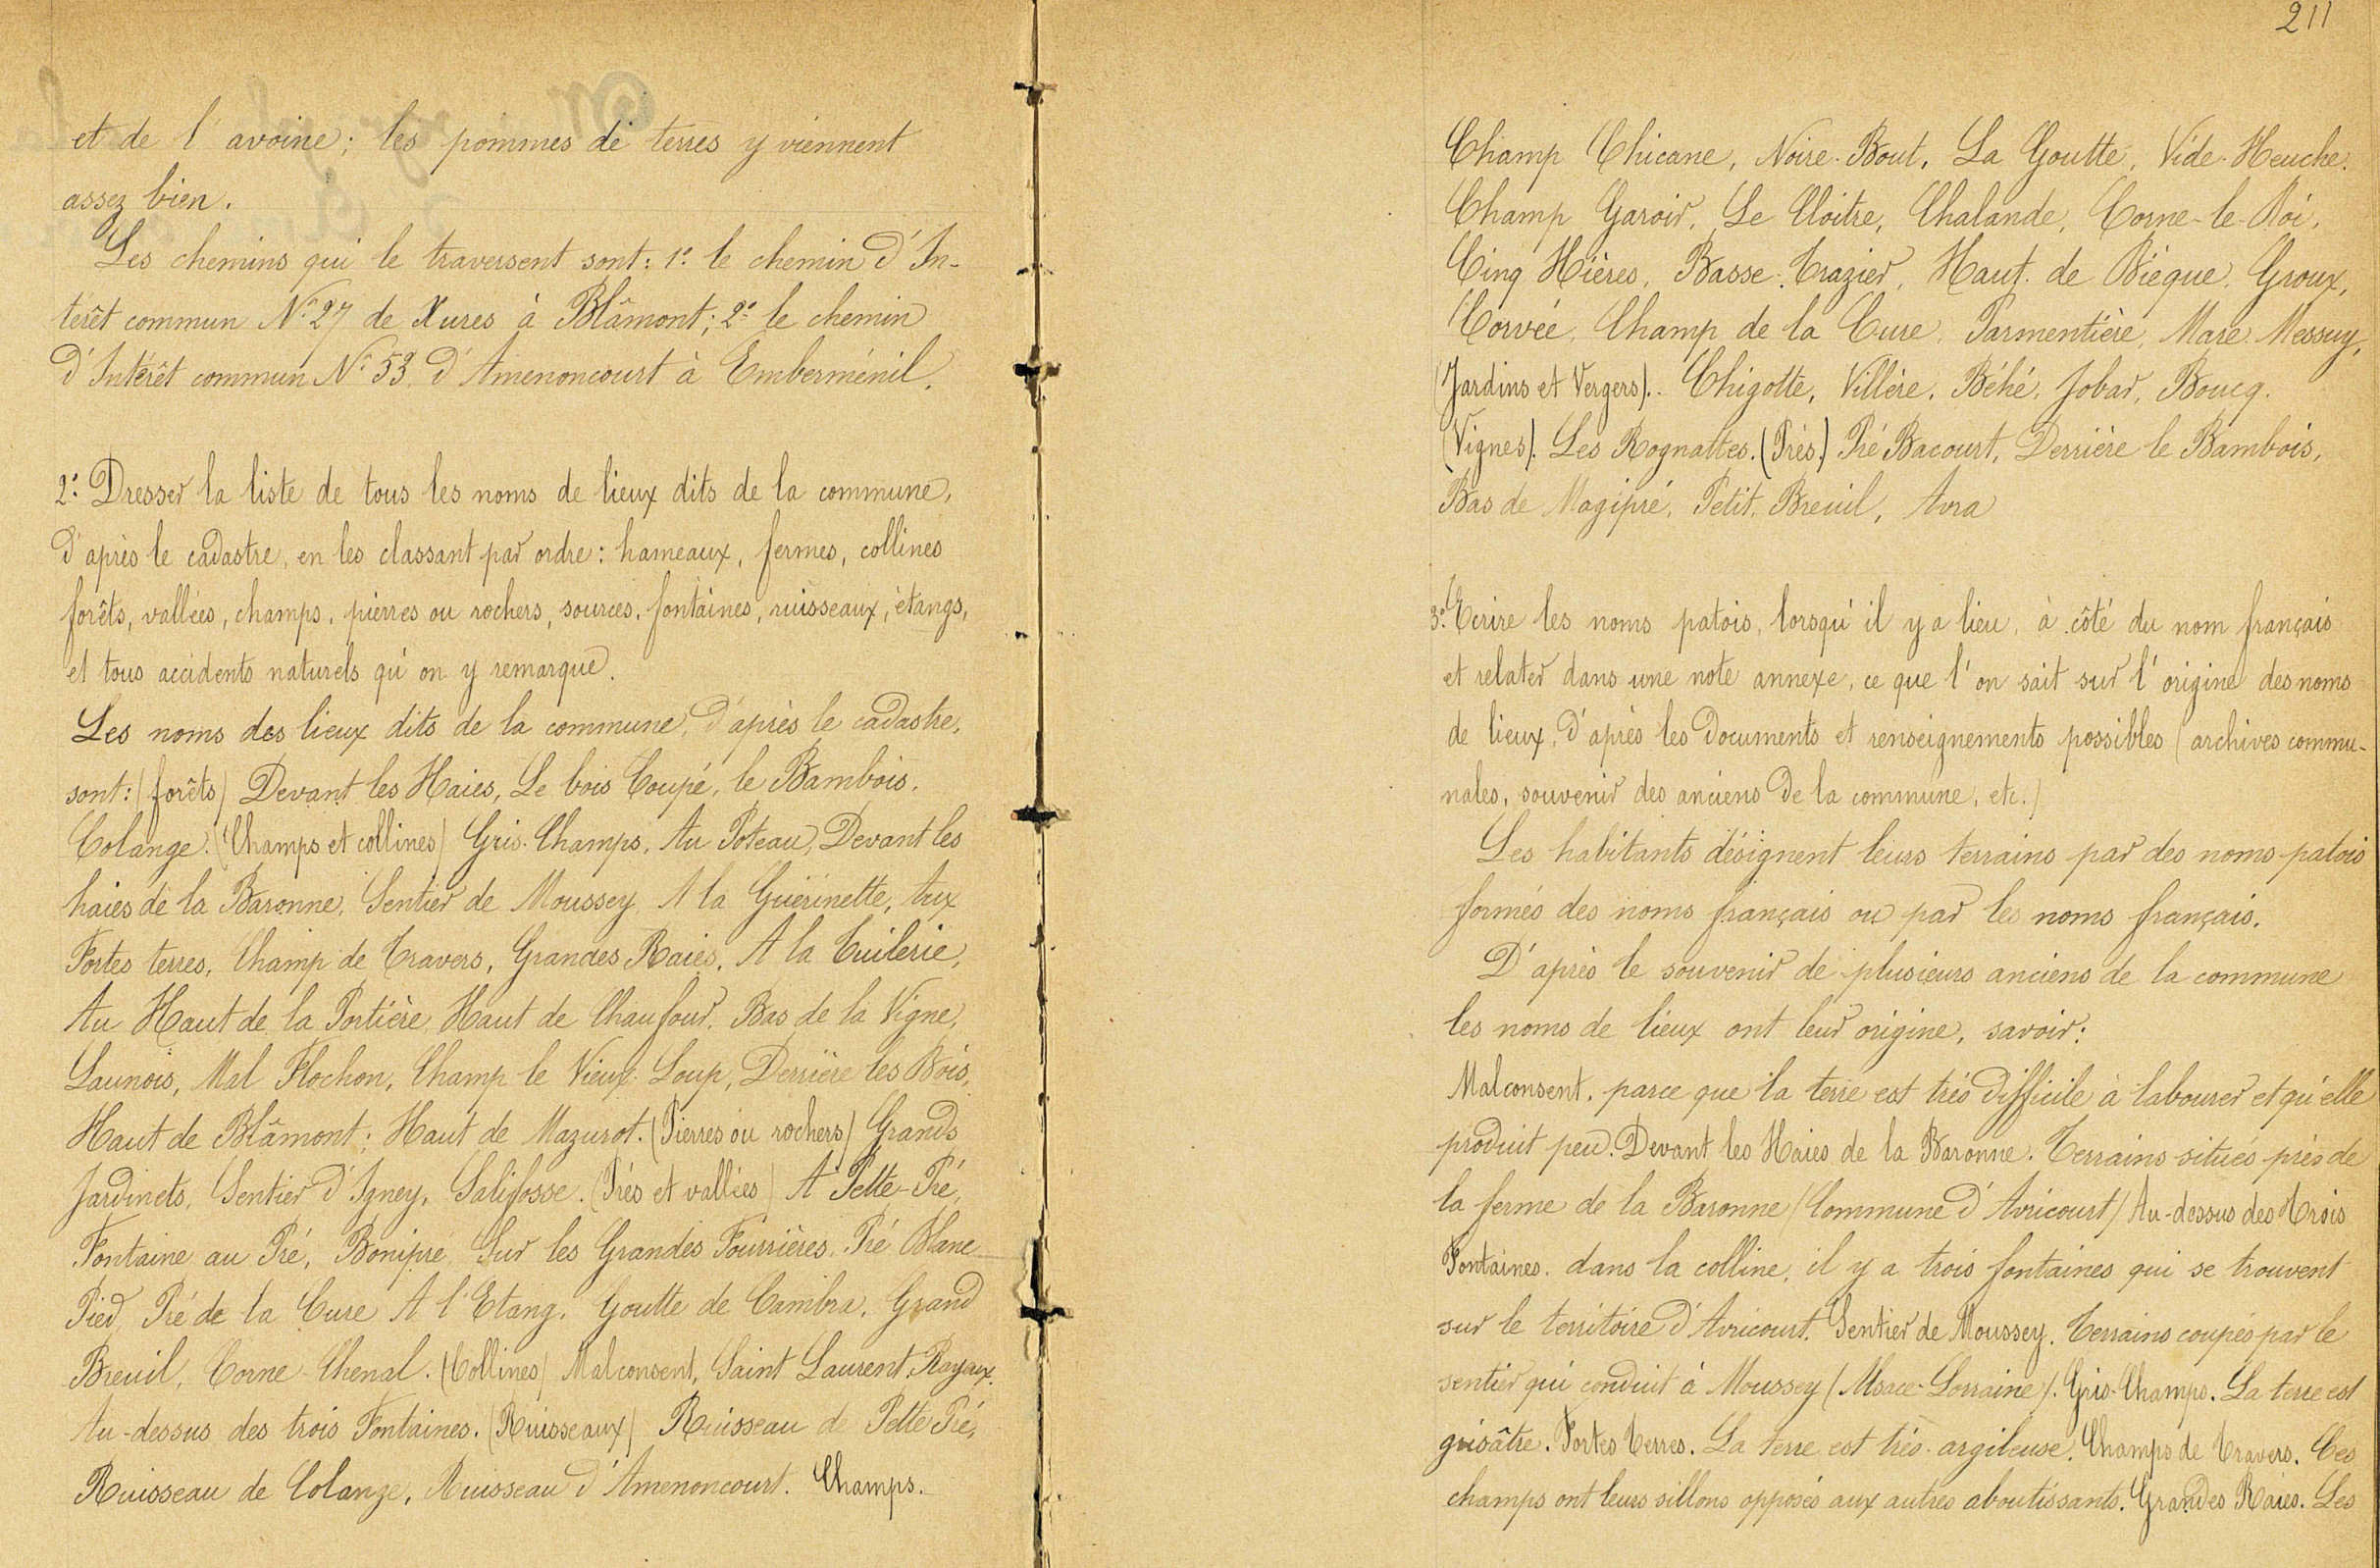 et de l'avoine; les pommes de terres y viennent
assez bien.
Les chemins qui le traversent sont: 1° le chemin d'In-
térêt commun N° 27 de Xures à Blâmont; 2° le chemin
d'Intérêt commun N° 53 d'Amenoncourt à Emberménil.
2° Dresser la liste de tous les noms de lieux dits de la commune,
d'après le cadastre, en les classant par ordre: hameaux, fermes, collines
forêts, vallées, champs, pierres ou rochers, sources, fontaines, ruisseaux, étangs,
et tous accidents naturels qu'on y remarque.
Les noms des lieux dits de la commune, d'après le cadastre,
sont: (forêts) Devant les Haies, Le bois Coupé, le Bambois,
Colange. (Champs et collines) Gris-Champs, Au Poteau, Devant les
haies de la Baronne, Sentier de Moussey, A la Guérinette, Aux
Fortes terres, Champ de Travers, Grandes Raies, A la Tuilerie,
Au Haut de la Portière, Haut de Chaufour, Bas de la Vigne,
Launois, Mal Flochon, Champ le Vieux-Loup, Derrière les Bois,
Haut de Blâmont; Haut de Mazurot. (Pierres ou rochers) Grands
Jardinets, Sentier d'Igney, Salifosse. (Prés et vallées) A Pette-Pré,
Fontaine au Pré, Bonipré, Sur les Grandes Fourrières, Pré Blanc
Pied, Pré de la Cure, A l'Etang, Goutte de Cambra, Grand
Breuil, Corne Chenal. (Collines) Malconsent, Saint Laurent, Rayaux.
Au-dessus des trois Fontaines. (Ruisseaux) Ruisseau de Pette Pré,
Ruisseau de Colange, Ruisseau d'Amenoncourt. Champs.
211
Champ Chicane, Noire-Bout, La Goutte, Vide-Heuche.
Champ Garoir, Le Cloître, Chalande, Corne-le-Roi,
Cinq Hières, Basse Trazier, Haut de Bièque, Groux,
Corvée, Champ de la Cure, Parmentière, Mare Messuy,
(Jardins et Vergers). Chigotte, Villère, Béhé, Jobar, Boucq.
(Vignes). Les Rognattes. (Prés.) Pré Bacourt, Derrière le Bambois,
Bas de Magipré, Petit Breuil, Avra
3° Ecrire les noms patois, lorsqu'il y a lieu, à côté du nom français
et relater dans une note annexe, ce que l'on sait sur l'origine des noms
de lieux, d'après les documents et renseignements possibles (archives commu-
nales, souvenir des anciens de la commune, etc.)
Les habitants désignent leurs terrains par des noms patois
formés des noms français ou par les noms français.
D'après le souvenir de plusieurs anciens de la commune
les noms de lieux ont leur origine, savoir:
Malconsent. parce que la terre est très difficile à labourer et qu'elle
produit peu. Devant les Haies de la Baronne. Terrains situés près de
la ferme de la Baronne (Commune d'Avricourt) Au-dessus des Trois
Fontaines. dans la colline, il y a trois fontaines qui se trouvent
sur le territoire d'Avricourt. Sentier de Moussey. Terrains coupés par le
sentier qui conduit à Moussey (Alsace-Lorraine). Gris-Champs. La terre est
grisâtre. Fortes Terres. La terre est très argileuse. Champs de Travers. Ces
champs ont leurs sillons opposés aux autres aboutissants. Grandes Raies. Les